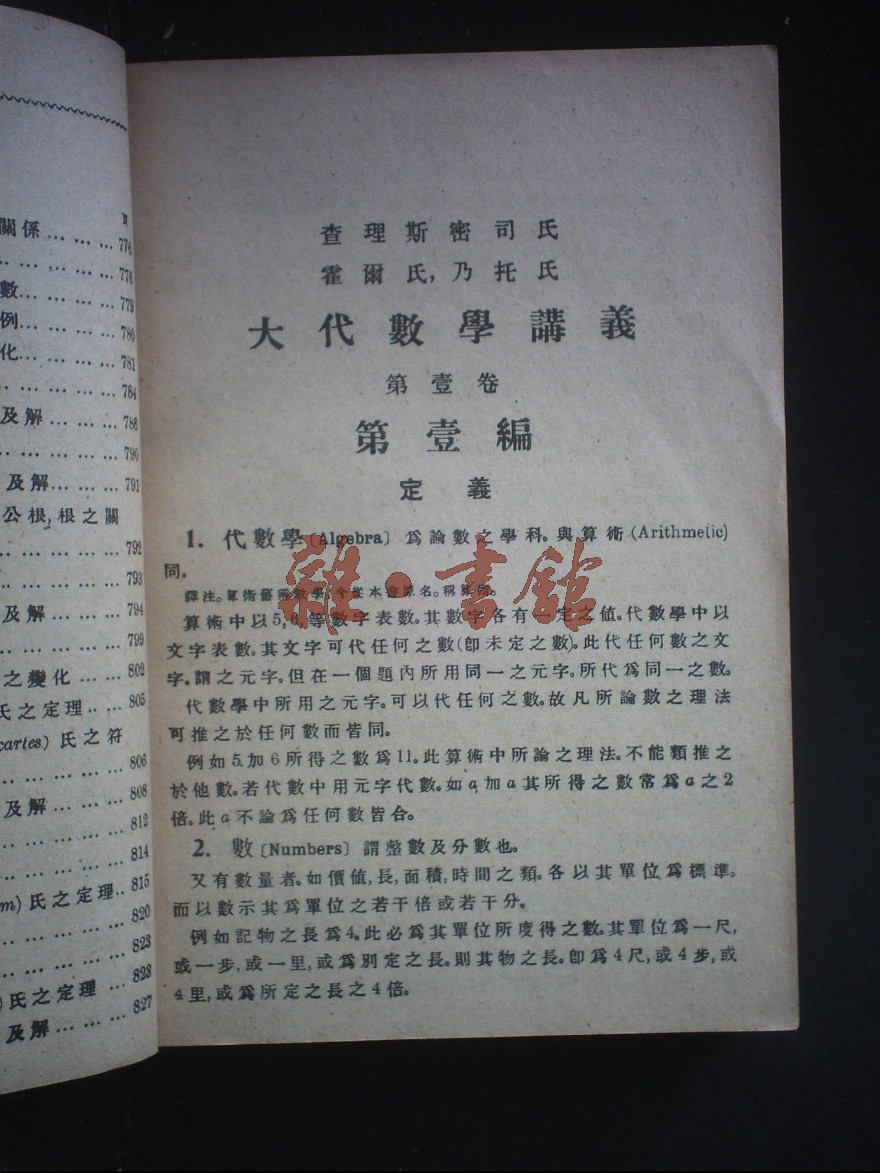 頁
關係………774
………778
數………779
例………780
化………781
………784
及解………786
………790
及解………791
公根,根之關
………792
………793
及解………794
………799
之變化………802
氏之定理……805
cartes) 氏之符
………806
及解………808
………812
………814
m) 氏之定理..815
………820
………823
………823
)氏之定理………
及解………827
查理斯密司氏
霍爾氏,乃托氏
大代數學講義
第壹卷
第壹編
定義
1. 代數學〔Algebra〕爲論數之學科。與算術(Arithmetic)
同。
譯注。算術舊稱數學。今從本書原名。稱算術。
算術中以5,6,等數字表數。其數字各有一定之値。代數學中以
文字表數。其文字可代任何之數(卽未定之數)。此代任何數之文
字。謂之元字。但在一個題內所用同一之元字。所代爲同一之數。
代數學中所用之元字。可以代任何之數。故凡所論數之理法
可推之於任何數而皆同。
例如5.加6所得之數爲11。此算術中所論之理法。不能類推之
於他數。若代數中用元字代數。如a加a其所得之數常爲a之2
倍。此a不論爲任何數皆合。
2. 數〔Numbers〕謂整數及分數也。
又有數量者。如價値,長,面積,時間之類。各以其單位爲標準。
而以數示其爲單位之若干倍或若干分。
例如記物之長爲4。此必爲其單位所度得之數。其單位爲一尺,
或一步,或一里,或爲別定之長。則其物之長。卽爲4尺,或4步,或
4里,或爲所定之長之4倍。
雜·書館